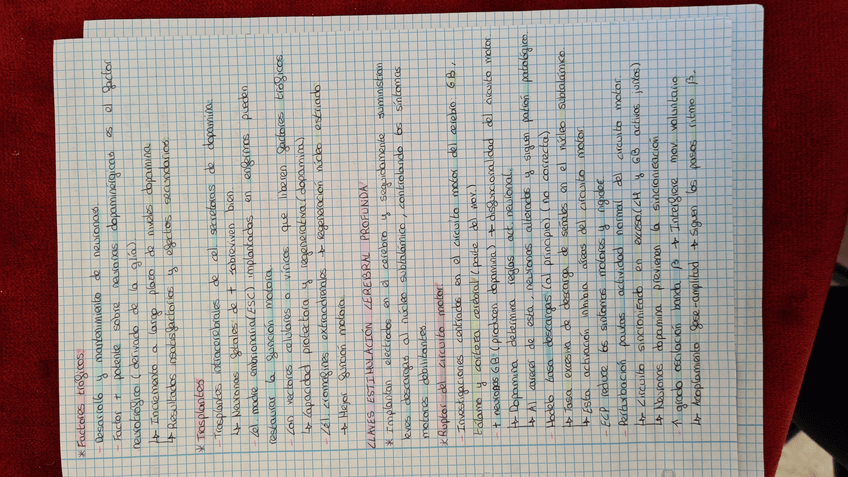 * Factores tróficos:
- Desarrollo y mantenimiento de neuronas
- Factor + potente sobre neuronas dopaminérgicas es el factor
neurotrófico (derivado de la glía)
↳ Incremento a largo plazo de niveles dopamina
↳ Resultados insatisfactorios y efectos secundarios
* Trasplantes
- Trasplantes intracerebrales de cel secretoras de dopamina:
↳ Neuronas fetales de + sobreviven bien
- Cel madre embrionaria (ESC) implantadas en enfermos pueden
restaurar la función motora
- Con vectores celulares o víricos que liberen factores tróficos
↳ Capacidad protectora y regenerativa (dopamina)
- Cél cromafines extraadrenales → regeneración núcleo estriado
→ Mejor función motora
CLAVES ESTIMULACIÓN CEREBRAL PROFUNDA
* Implantan electrodos en el cerebro y seguidamente suministran
leves descargas al núcleo subtalámico, controlando los síntomas
motores debilitantes
* Ruptor del circuito motor
- Investigaciones centradas en el circuito motor del cerebro: GB,
tálamo y corteza cerebral (parte del mov.)
- + neuronas GB (producen dopamina) → disfuncionalidad del circuito motor
↳ Dopamina determina reglas act. neuronal.
↳ Al carecer de esta, neuronas alteradas y siguen patrón patológico.
- Modelo tasa descargas (al principio) (no correcta)
↳ Tasa excesiva de descarga de señales en el núcleo subtalámico
↳ Esta activación inhibía áreas del circuito motor
- ECP reduce los síntomas motores y rigidez
- Perturbación pautas actividad normal del circuito motor
↳ Circuito sincronizado en exceso (CM y GB activos juntos)
↳ Neuronas dopamina previenen la sincronización
- ↑ grado oscilación banda β → Interfiere mov. voluntario
↳ Acoplamiento fase-amplitud → Siguen los pasos ritmo β.